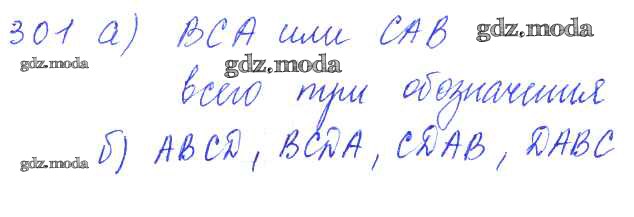 301 а) ВСА или САВ gdz.moda
gdz.moda gdz.moda
всего три обозначения
gdz.moda б) ABCD, BCDA, CDAB, DABC